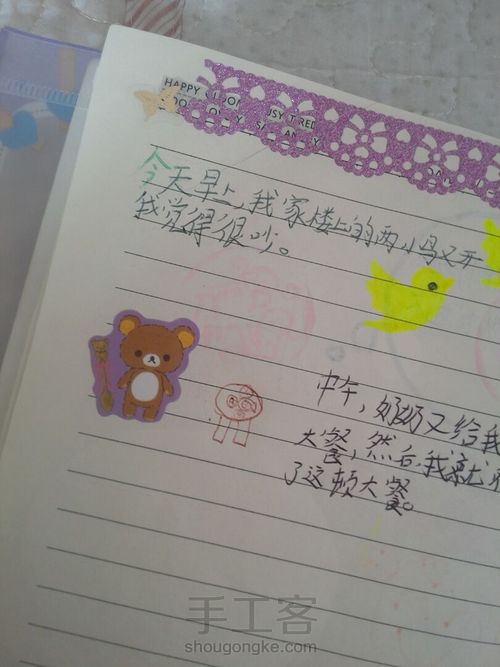 HAPPY
今天早上,我家楼上的两小鸟又开
我觉得很吵。
中午,奶奶又给我
大餐,然后,我就
了这顿大餐。
手工客
shougongke.com